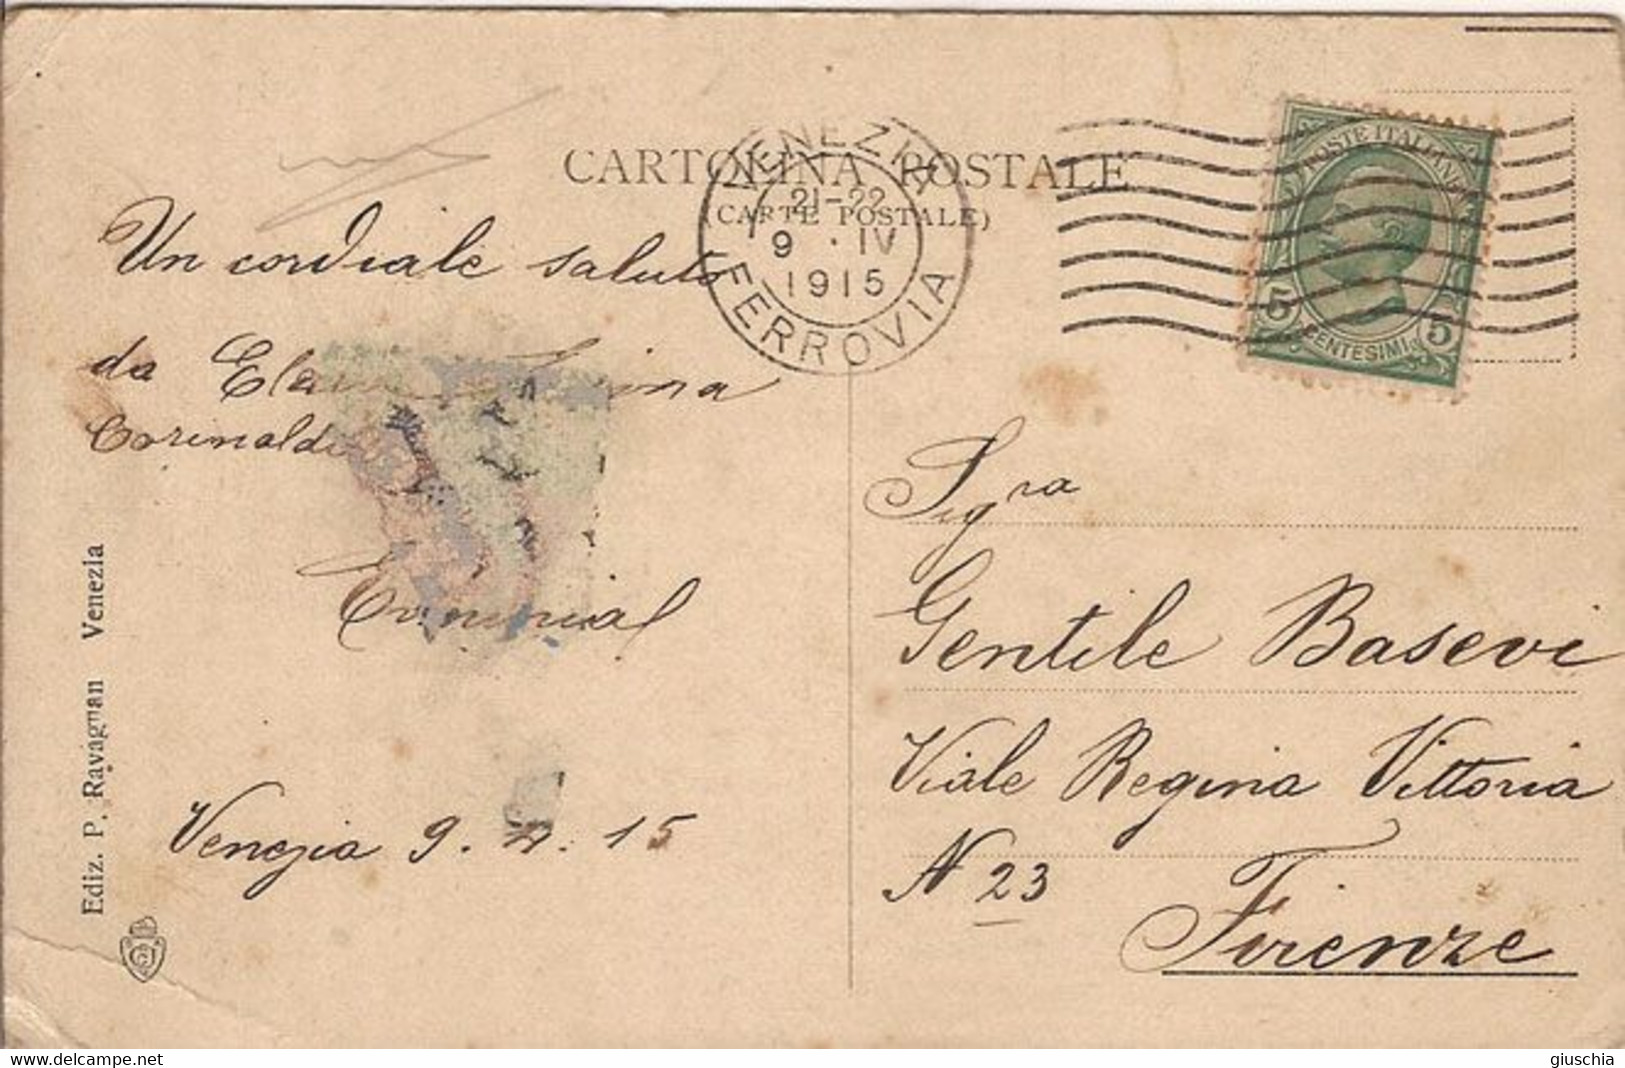 CARTOLINA POSTALE
(CARTE POSTALE)
VENEZIA
21-22
9 · IV
1915
FERROVIA
POSTE ITALIANE
5 CENTESIMI 5
Un cordiale saluto
da
Corinaldi
Venezia 9.4.15
Sig.ra
Gentile Basevi
Viale Regina Vittoria
N 23
Firenze
Ediz. P. Ravagnan Venezia
www.delcampe.net
giuschia